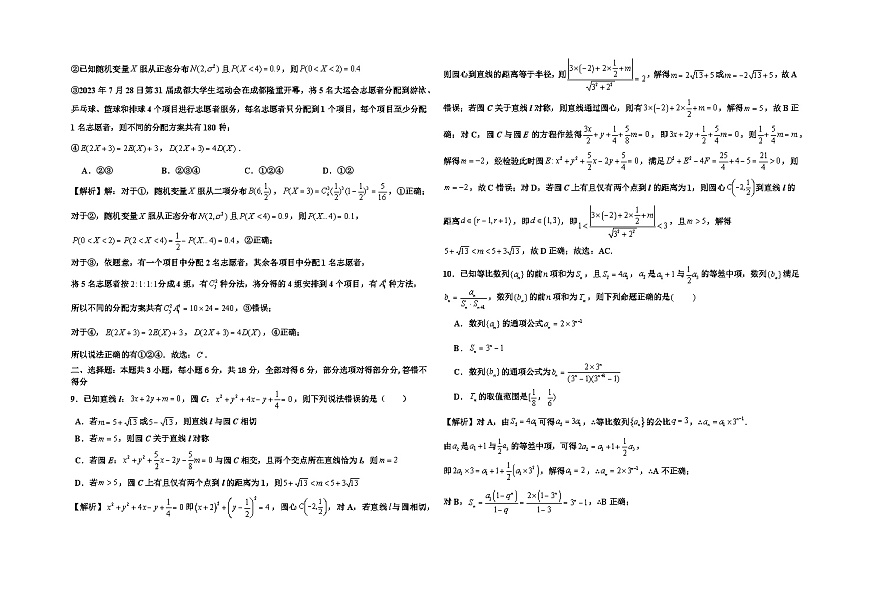 ②已知随机变量 X 服从正态分布 N(2,σ²) 且 P(X<4)=0.9，则 P(0<X<2)=0.4
③2023 年 7 月 28 日第 31 届成都大学生运动会在成都隆重开幕，将 5 名大运会志愿者分配到游泳、
乒乓球、篮球和排球 4 个项目进行志愿者服务，每名志愿者只分配到 1 个项目，每个项目至少分配
1 名志愿者，则不同的分配方案共有 180 种；
④ E(2X+3)=2E(X)+3，D(2X+3)=4D(X)．
A．②③ B．②③④ C．①②④ D．①②
【解析】解：对于①，随机变量 X 服从二项分布 B(6,1/2)，P(X=3)=C₆³(1/2)³(1-1/2)³=5/16，①正确；
对于②，随机变量 X 服从正态分布 N(2,σ²) 且 P(X<4)=0.9，则 P(X…4)=0.1，
P(0<X<2)=P(2<X<4)=1/2-P(X…4)=0.4，②正确；
对于③，依题意，有一个项目中分配 2 名志愿者，其余各项目中分配 1 名志愿者，
将 5 名志愿者按 2:1:1:1 分成 4 组，有 C₅² 种分法，将分得的 4 组安排到 4 个项目，有 A₄⁴ 种方法，
所以不同的分配方案共有 C₅²A₄⁴=10×24=240，③错误；
对于④，E(2X+3)=2E(X)+3，D(2X+3)=4D(X)，④正确；
所以说法正确的有①②④．故选：C．
二、选择题：本题共 3 小题，每小题 6 分，共 18 分，全部对得 6 分，部分选项对得部分分,答错不
得分
9．已知直线 l：3x+2y+m=0，圆 C：x²+y²+4x-y+1/4=0，则下列说法错误的是（ ）
A．若 m=5+√13 或 5-√13，则直线 l 与圆 C 相切
B．若 m=5，则圆 C 关于直线 l 对称
C．若圆 E：x²+y²+5/2x-2y-5/8m=0 与圆 C 相交，且两个交点所在直线恰为 l，则 m=2
D．若 m>5，圆 C 上有且仅有两个点到 l 的距离为 1，则 5+√13<m<5+3√13
【解析】x²+y²+4x-y+1/4=0 即 (x+2)²+(y-1/2)²=4，圆心 C(-2,1/2)，对 A，若直线 l 与圆相切，
则圆心到直线的距离等于半径，则 |3×(-2)+2×1/2+m|/√(3²+2²)=2，解得 m=2√13+5 或 m=-2√13+5，故 A
错误；若圆 C 关于直线 l 对称，则直线通过圆心，则有 3×(-2)+2×1/2+m=0，解得 m=5，故 B 正
确；对 C，圆 C 与圆 E 的方程作差得 3x/2+y+1/4+5/8m=0，即 3x+2y+1/2+5/4m=0，则 1/2+5/4m=m，
解得 m=-2，经检验此时圆 E：x²+y²+5/2x-2y+5/4=0，满足 D²+E²-4F=25/4+4-5=21/4>0，则
m=-2，故 C 错误；对 D，若圆 C 上有且仅有两个点到 l 的距离为 1，则圆心 C(-2,1/2) 到直线 l 的
距离 d∈(r-1,r+1)，即 d∈(1,3)，即 1<|3×(-2)+2×1/2+m|/√(3²+2²)<3，且 m>5，解得
5+√13<m<5+3√13，故 D 正确；故选：AC．
10．已知等比数列{aₙ}的前 n 项和为 Sₙ，且 S₂=4a₁，a₂是 a₁+1 与 1/2a₃ 的等差中项，数列{bₙ}满足
bₙ=aₙ/(Sₙ·Sₙ₊₁)，数列{bₙ}的前 n 项和为 Tₙ，则下列命题正确的是( )
A．数列{aₙ}的通项公式 aₙ=2×3ⁿ⁻¹
B．Sₙ=3ⁿ-1
C．数列{bₙ}的通项公式为 bₙ=2×3ⁿ/((3ⁿ-1)(3ⁿ⁺¹-1))
D．Tₙ的取值范围是[1/8，1/6)
【解析】对 A，由 S₂=4a₁ 可得 a₂=3a₁，∴等比数列{aₙ}的公比 q=3，∴aₙ=a₁×3ⁿ⁻¹．
由 a₂是 a₁+1 与 1/2a₃ 的等差中项，可得 2a₂=a₁+1+1/2a₃，
即 2a₁×3=a₁+1+1/2(a₁×3²)，解得 a₁=2，∴aₙ=2×3ⁿ⁻¹，∴A 不正确；
对 B，Sₙ=a₁(1-qⁿ)/(1-q)=2×(1-3ⁿ)/(1-3)=3ⁿ-1，∴B 正确；